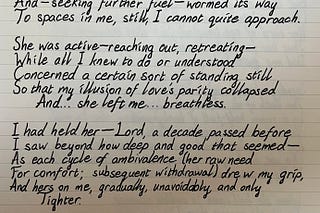 And—seeking further fuel—wormed its way
To spaces in me, still, I cannot quite approach.
She was active—reaching out, retreating—
While all I knew to do or understood
Concerned a certain sort of standing still
So that my illusion of love's parity collapsed
And... she left me... breathless.
I had held her—Lord, a decade passed before
I saw beyond how deep and good that seemed—
As each cycle of ambivalence (her raw need
For comfort; subsequent withdrawal) drew my grip,
And hers on me, gradually, unavoidably, and only
Tighter.